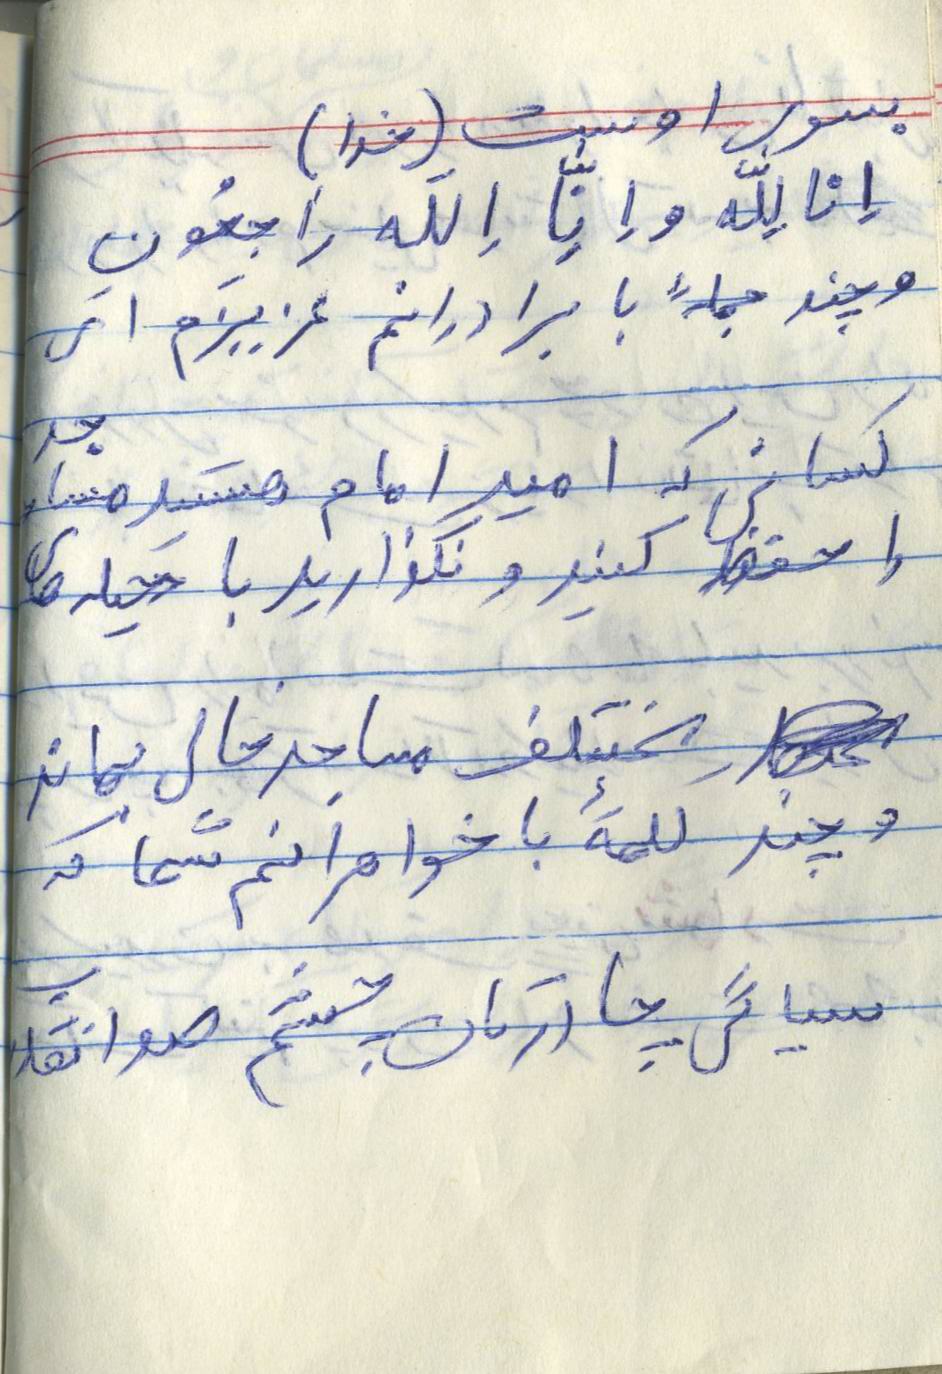 بسوی اوست (خدا)
اِنا لِلّه و اِنّا اِللَه رَاجعُون
و چند جملهٔ با برادرانم عزیزم ای
کسانی که امید امام هستید مساجد
را حفظ کنید و نگذارید با حیله های
مختلف مساجد خالی بماند
و چند کلمهٔ با خواهرانم شما که
سیاهی چادرتان چشم ضد انقلاب